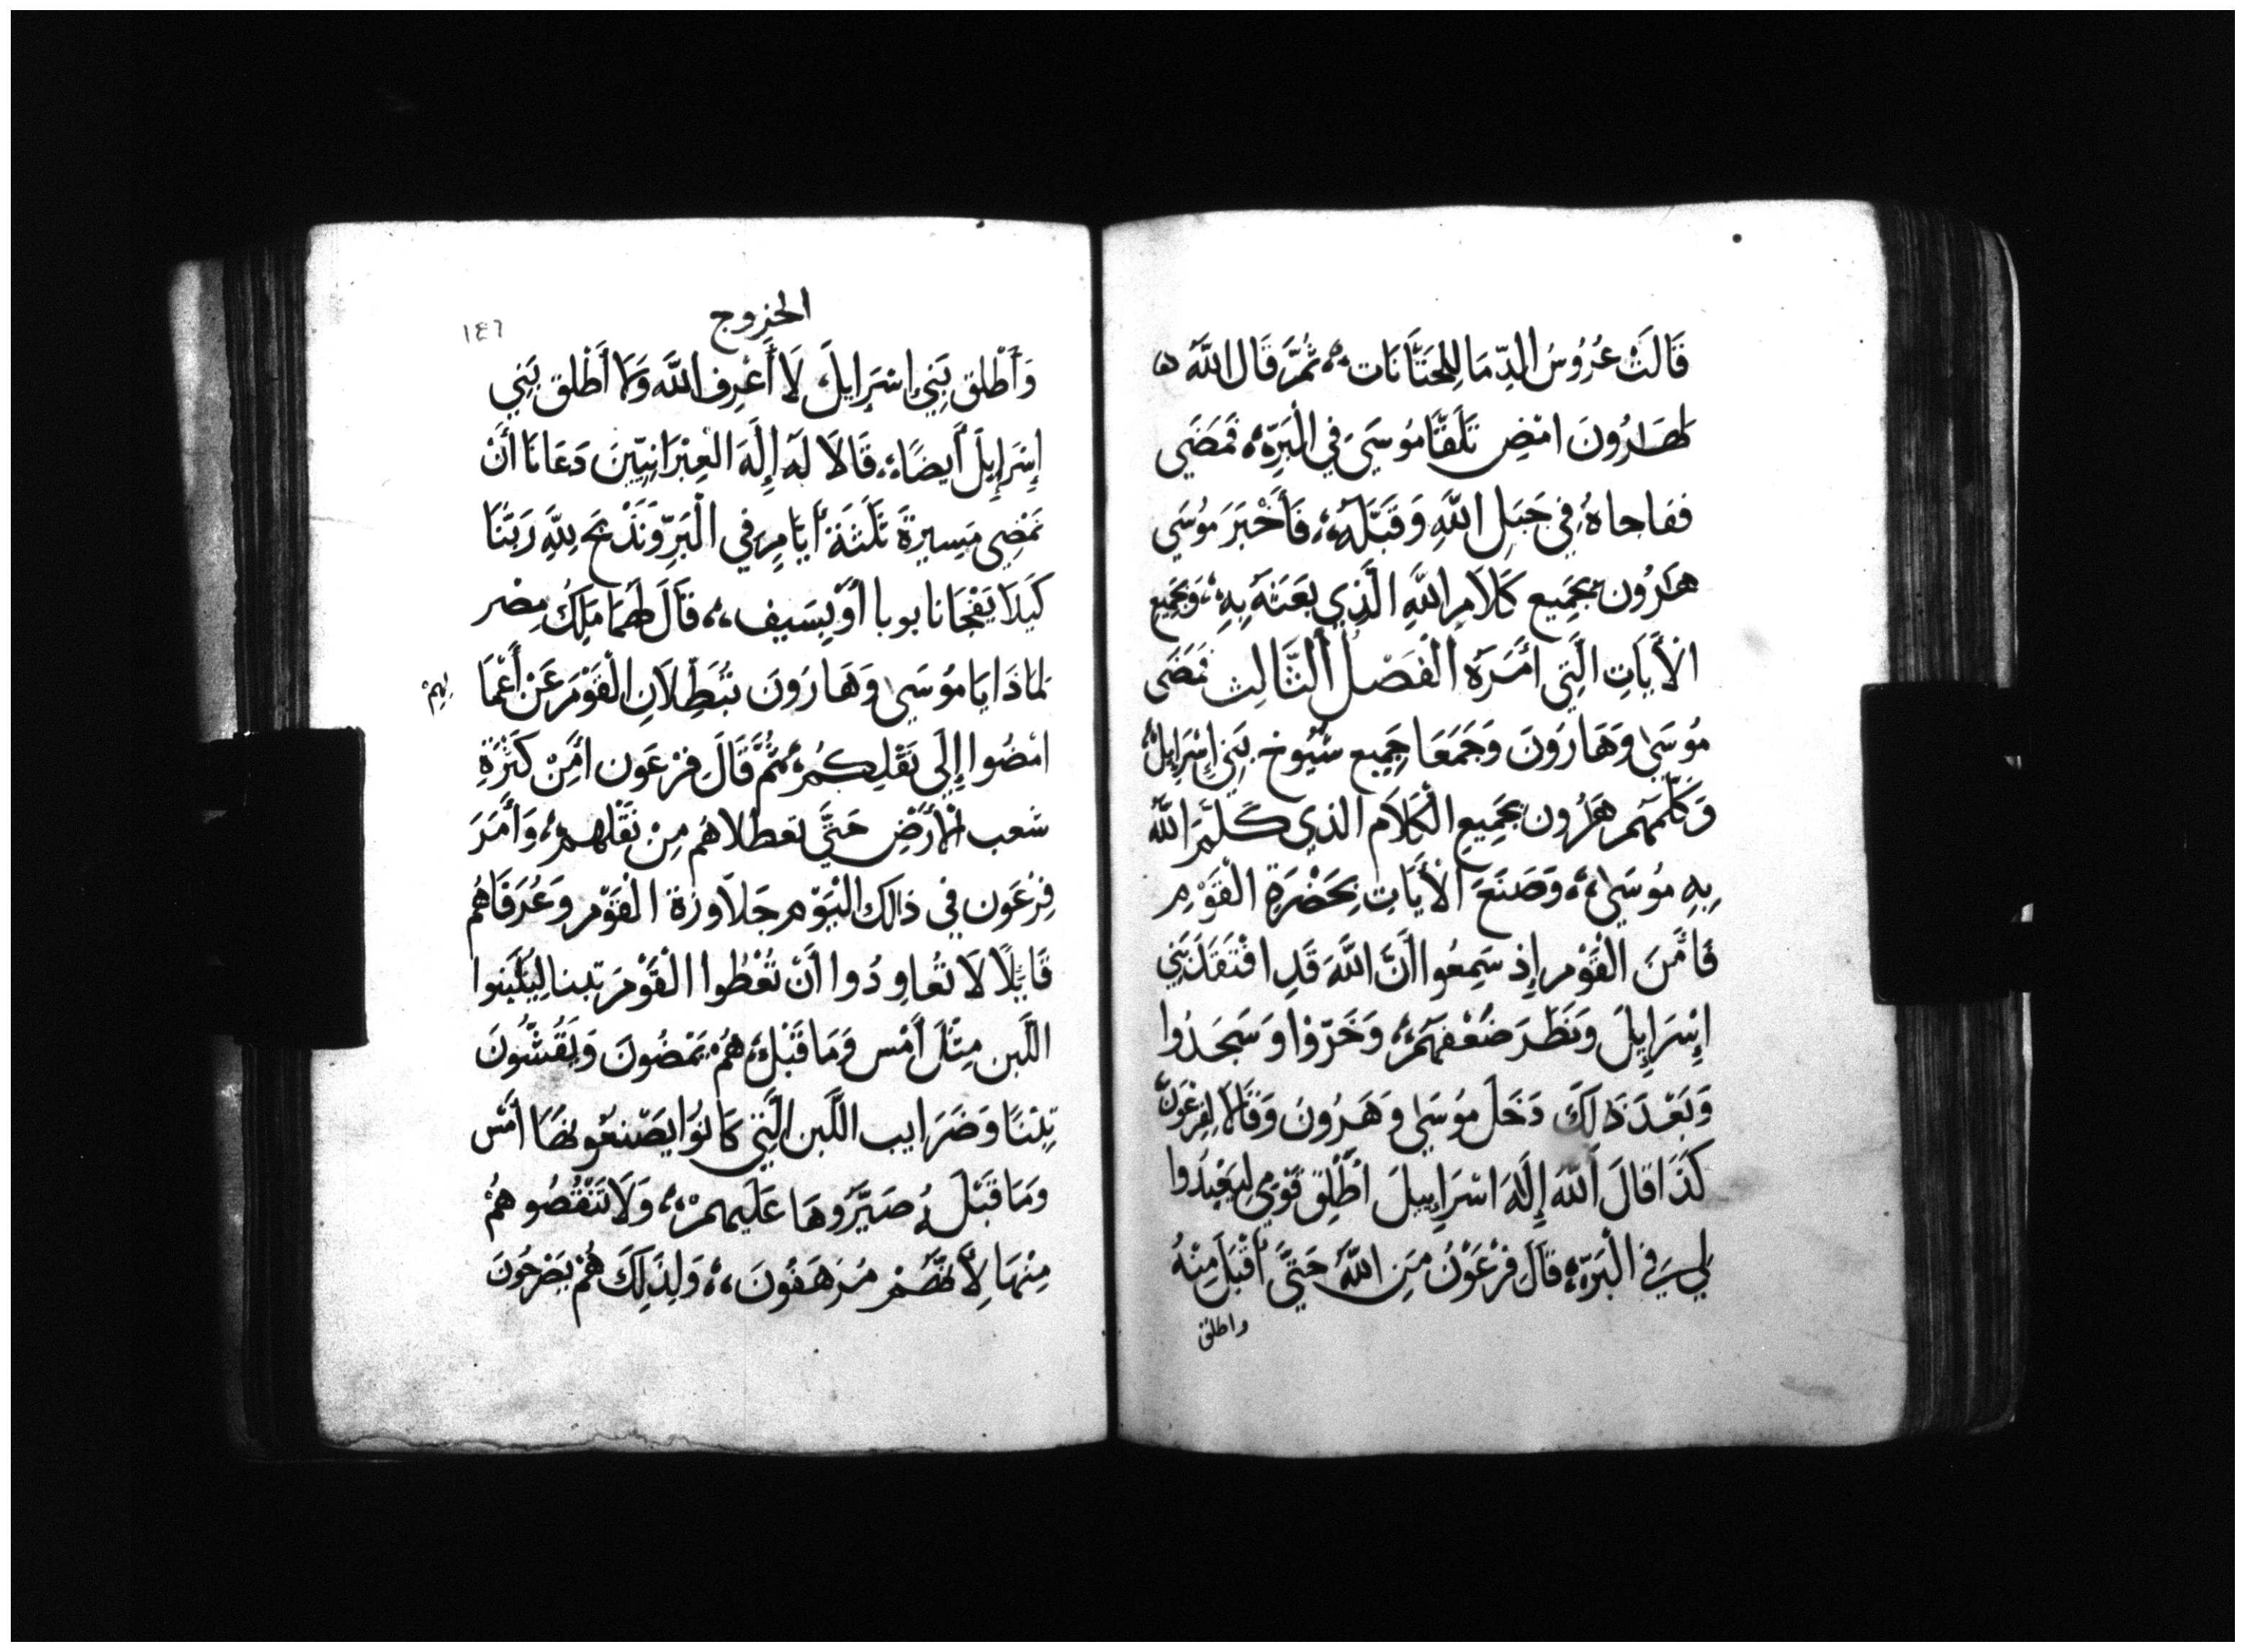 قَالَتْ عُرُوسُ الدِّمَا لِلخَتَّانَات ثُمَّ قَالَ اللَّه
لهَارُونَ امْضِ تَلَقَّا مُوسَي فِي الْبَرِّه فَمَضَي
ففاجاهُ فِي جَبَلِ اللَّهِ وَقَبَّلَهُ فَأَخْبَرَ مُوسَي
هَرُون بجَمِيع كَلَامِ اللَّهِ الَّذِي بَعَثَهُ بِهِ وَبجَمِيع
الْأَيَاتِ الَّتِي أمَرَهُ الْفَصْلُ الثَّالِث فَمَضَى
مُوسَى وَهَارَونَ وَجَمَعَا جَمِيع شُيُوخ بَنِي إسْرَايلْ
وَكَلَّمَهُم هَرُون بجَمِيعِ الْكَلَام الذي كَلَّمَ اللَّه
بِهِ مُوسَى وَصَنَعَ الْأَيَاتِ بِحَضْرَةِ الْقَوْمِ
فَأمَنَ الْقَوْم إِذ سَمِعُوا أَنَّ اللَّهَ قَدِ افْتَقَدَ بَنِي
إِسْرَايِلَ وَنَظَرَ ضَعْفَهُمْ وَخَرّوا وَسَجَدُوا
وَبَعْدَ ذَلِكَ دَخَلَ مُوسَى وَهَرُونَ وَقَالَا لِفِرْعَوْنَ
كَذَا قَالَ اللَّهَ إِلَهُ اسْرَايِيلَ اطْلِق قَوْمِي لِيَعْبِدُوا
لِي فِي الْبَرِّه قَالَ فِرْعَوْنُ مَنِ اللَّهُ حَتَّى أَقْبَلَ مِنْهُ
واطلق
الخروج
١٤٦
وَأَطْلق بَنِي إسْرَايلَ لَا أَعْرِف اللَّه وَلَا أَطْلق بَنِي
إِسْرَايِلَ أَيضًا قَالَا لَهُ إِلَهَ العِبْرَانِيِّينَ دَعَانَا أَنْ
نَمْضِي مَسِيرةَ ثَلَثَة أَيَّامٍ فِي الْبَرِّ وَنَذْبَح لِلَّهِ رَبّنَا
كَيلَا يَفْجَانا بوبا أَوْ بِسَيف قَالَ لَهُمَا مَلِكُ مِصْر
لمَاذَا يَا مُوسَي وَهَارَونَ تُبَطِّلَانِ الْقَوْمَ عَنْ أَعْمَا
لهمْ
امْضُوا إِلَى ثَقْلِكُمْ ثُمَّ قَالَ فِرْعَون أمِنْ كَثْرَةِ
شعب الْأَرْضِ حَتَّي تعطلاهُم مِنْ ثَقْلهمْ وَأَمَرَ
فِرْعَون فِي ذالكَ الْيَوْم جَلَاوزة الْقَوْم وَعُرَفَاهُم
قَايلًا لَا تُعَاوِدُوا أَنْ تُعْطُوا الْقَوْمَ تبنا لِيُلَبِّنوا
اللَّبن مِثْلَ أَمْس وَمَا قَبْلهُ هُمْ يَمْضُونَ وَيَقُشّونَ
تِبْنًا وَضَرَايب اللَّبن الَّتِي كَانُوا يَصْنعُونهَا أَمْس
وَمَا قَبْلَهُ صَيِّرُوهَا عَلَيهمْ وَلَا تَنْقُصُوهُمْ
مِنْهَا لِأَنَّهُمْ مُرَهَفُونَ وَلِذَلِكَ هُمْ يَصْرخُونَ